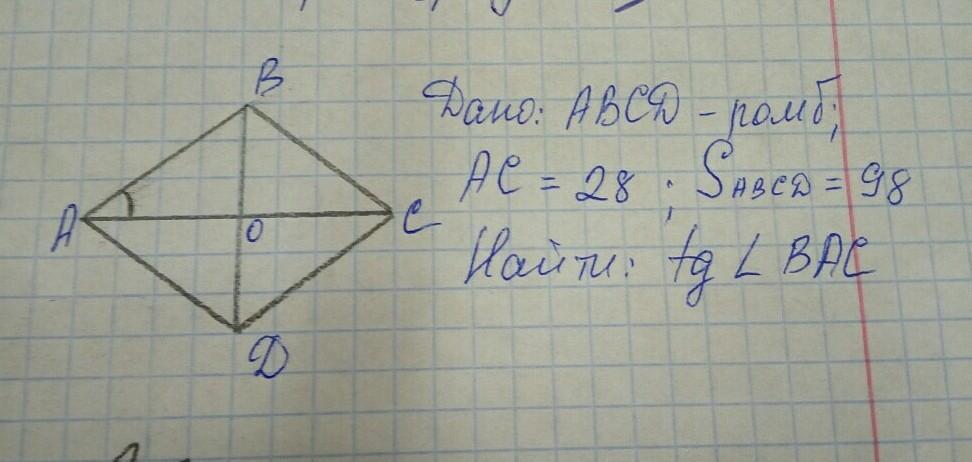 B
Дано: ABCD - ромб;
AC = 28 ; SABCD = 98
A
O
C
Найти: tg ∠ BAC
D